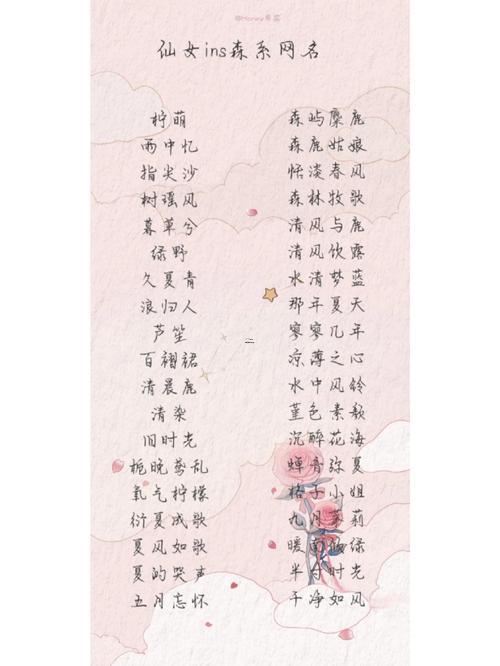 @Honey
仙女ins森系网名
柠萌
雨中忆
指尖沙
树瑶风
暮草兮
绿野
久夏青
浪归人
芦笙
百褶裙
清晨鹿
清染
旧时光
栀晚莺乱
氧气柠檬
衍夏成歌
夏风如歌
夏的哭声
五月忘怀
森屿麋鹿
森鹿姑娘
恬淡春风
森林牧歌
清风与鹿
清风饮露
水清梦蓝
那年夏天
寥寥几年
凉薄之心
水中风铃
堇色素颜
沉醉花海
蝉音弥夏
格子小姐
九月茉莉
暖南倾绿
半寸时光
干净如风